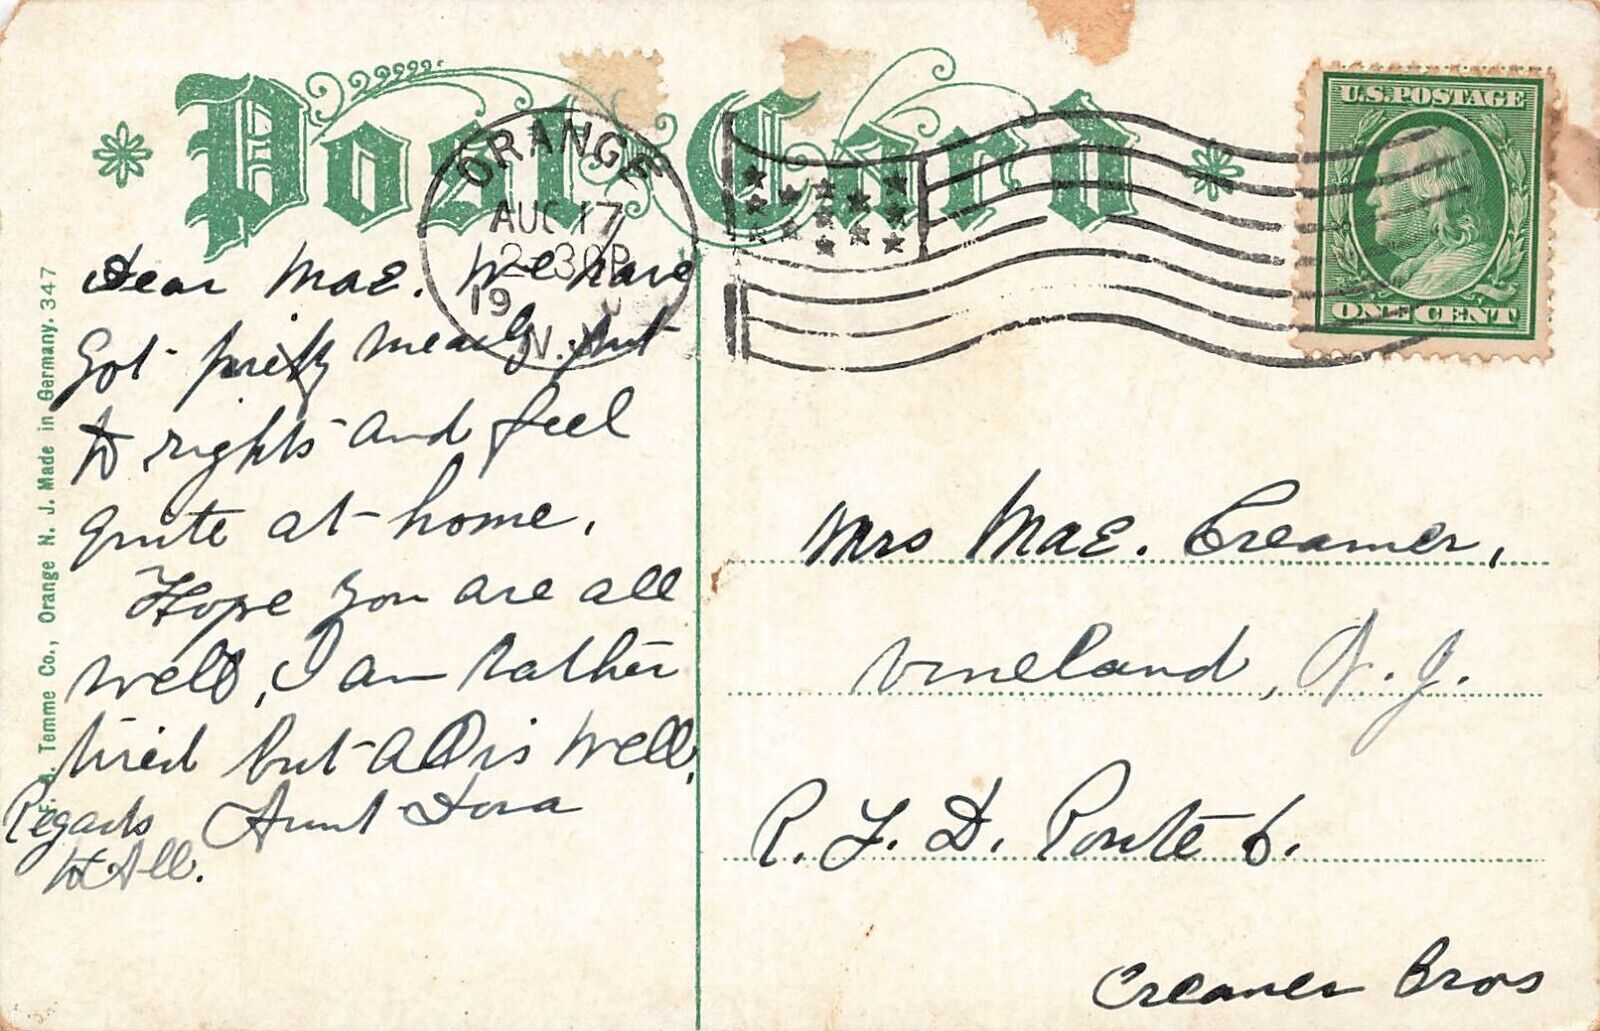 Post Card
ORANGE
AUG 17
2-30P
19
N.J.
U.S. POSTAGE
ONE CENT
Dear Mae. We have
Got pretty nearly put
to rights and feel
quite at home.
Hope you are all
well, I am rather
tired but all is well.
Regards Aunt Dora
to All.
Mrs Mae. Creamer,
Vineland, N. J.
R. F. D. Route 6.
Creamer Bros
Temme Co., Orange N. J. Made in Germany. 347